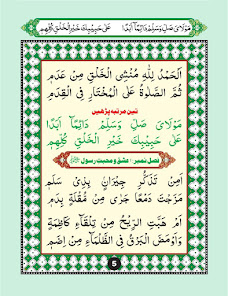 مَوْلَایَ صَلِّ وَسَلِّمْ دَآئِمًا اَبَدًا
عَلٰی حَبِیْبِکَ خَیْرِ الْخَلْقِ کُلِّهِمِ
اَلْحَمْدُ لِلّٰهِ مُنْشِی الْخَلْقِ مِنْ عَدَمِ
ثُمَّ الصَّلٰوةُ عَلَی الْمُخْتَارِ فِی الْقِدَمِ
تین مرتبہ پڑھیں
مَوْلَایَ صَلِّ وَسَلِّمْ دَآئِمًا اَبَدًا
عَلٰی حَبِیْبِکَ خَیْرِ الْخَلْقِ کُلِّهِمِ
فصل نمبر ۱ عشق و محبت رسول ﷺ
اَمِنْ تَذَکُّرِ جِیْرَانٍ بِذِیْ سَلَمِ
مَزَجْتَ دَمْعًا جَرٰی مِنْ مُّقْلَةٍ بِدَمِ
اَمْ هَبَّتِ الرِّیْحُ مِنْ تِلْقَآءِ کَاظِمَةٍ
وَاَوْمَضَ الْبَرْقُ فِی الظَّلْمَآءِ مِنْ اِضَمِ
5